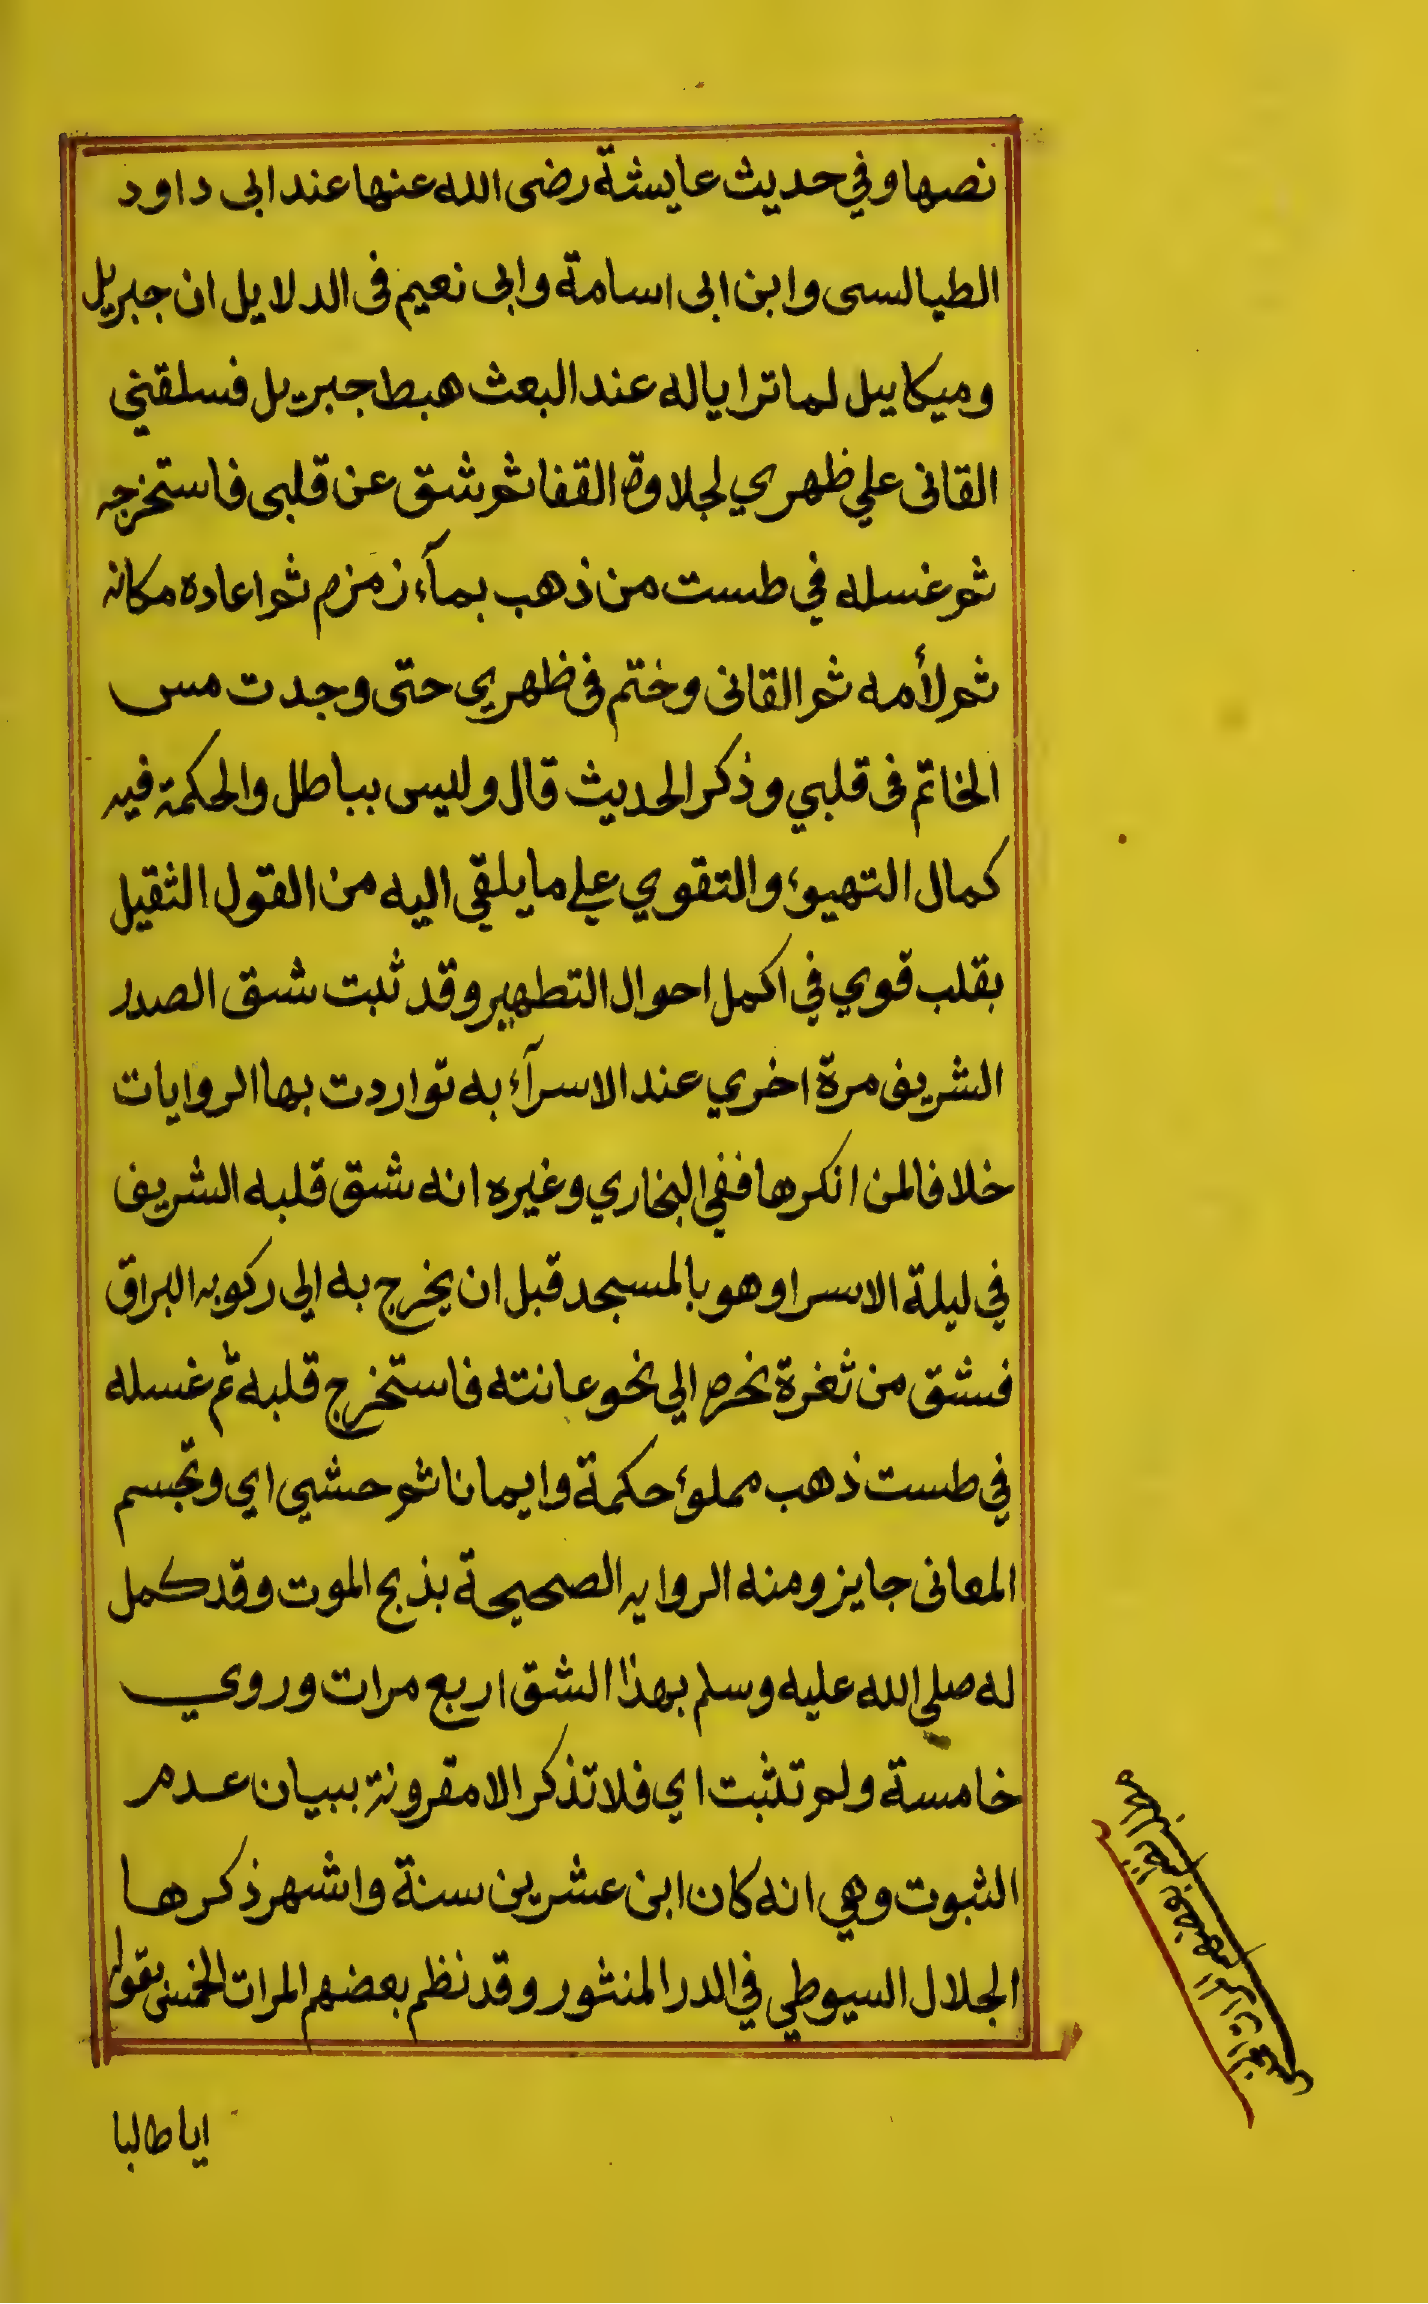 نصها وفي حديث عايشة رضى الله عنها عند ابى داود
الطيالسى وابن ابى اسامة وابى نعيم فى الدلايل ان جبريل
وميكاييل لما ترايا له عند البعث هبط جبريل فسلقني
القانى علي ظهري لجلاوة القفا ثم شق عن قلبى فاستخرجه
ثم غسله في طست من ذهب بمآء زمزم ثم اعاده مكانه
ثم لأمه ثم القانى وختم فى ظهري حتى وجدت مس
الخاتم فى قلبي وذكر الحديث قال وليس بباطل والحكمة فيه
كمال التهيوء والتقوي علي ما يلقي اليه من القول الثقيل
بقلب قوي في اكمل احوال التطهير وقد ثبت شق الصدر
الشريف مرة اخري عند الاسرآء به تواردت بها الروايات
خلافا لمن انكرها ففي البخاري وغيره انه شق قلبه الشريف
في ليلة الاسرا وهو بالمسجد قبل ان يخرج به الي ركوبه البراق
فشق من ثغرة نحره الي نحو عانته فاستخرج قلبه ثم غسله
في طست ذهب مملوء حكمة وايمانا ثم حشي اي وتجسم
المعانى جايز ومنه الرواية الصحيحة بذبح الموت وقد كمل
له صلي الله عليه وسلم بهذا الشق اربع مرات وروي
خامسة ولم تثبت اي فلا تذكر الا مقرونة ببيان عدم
الثبوت وهي انه كان ابن عشرين سنة واشهر ذكرها
الجلال السيوطي في الدر المنثور وقد نظم بعضهم المرات الخمس بقوله
ايا طالبا
نظم بعضهم المرات